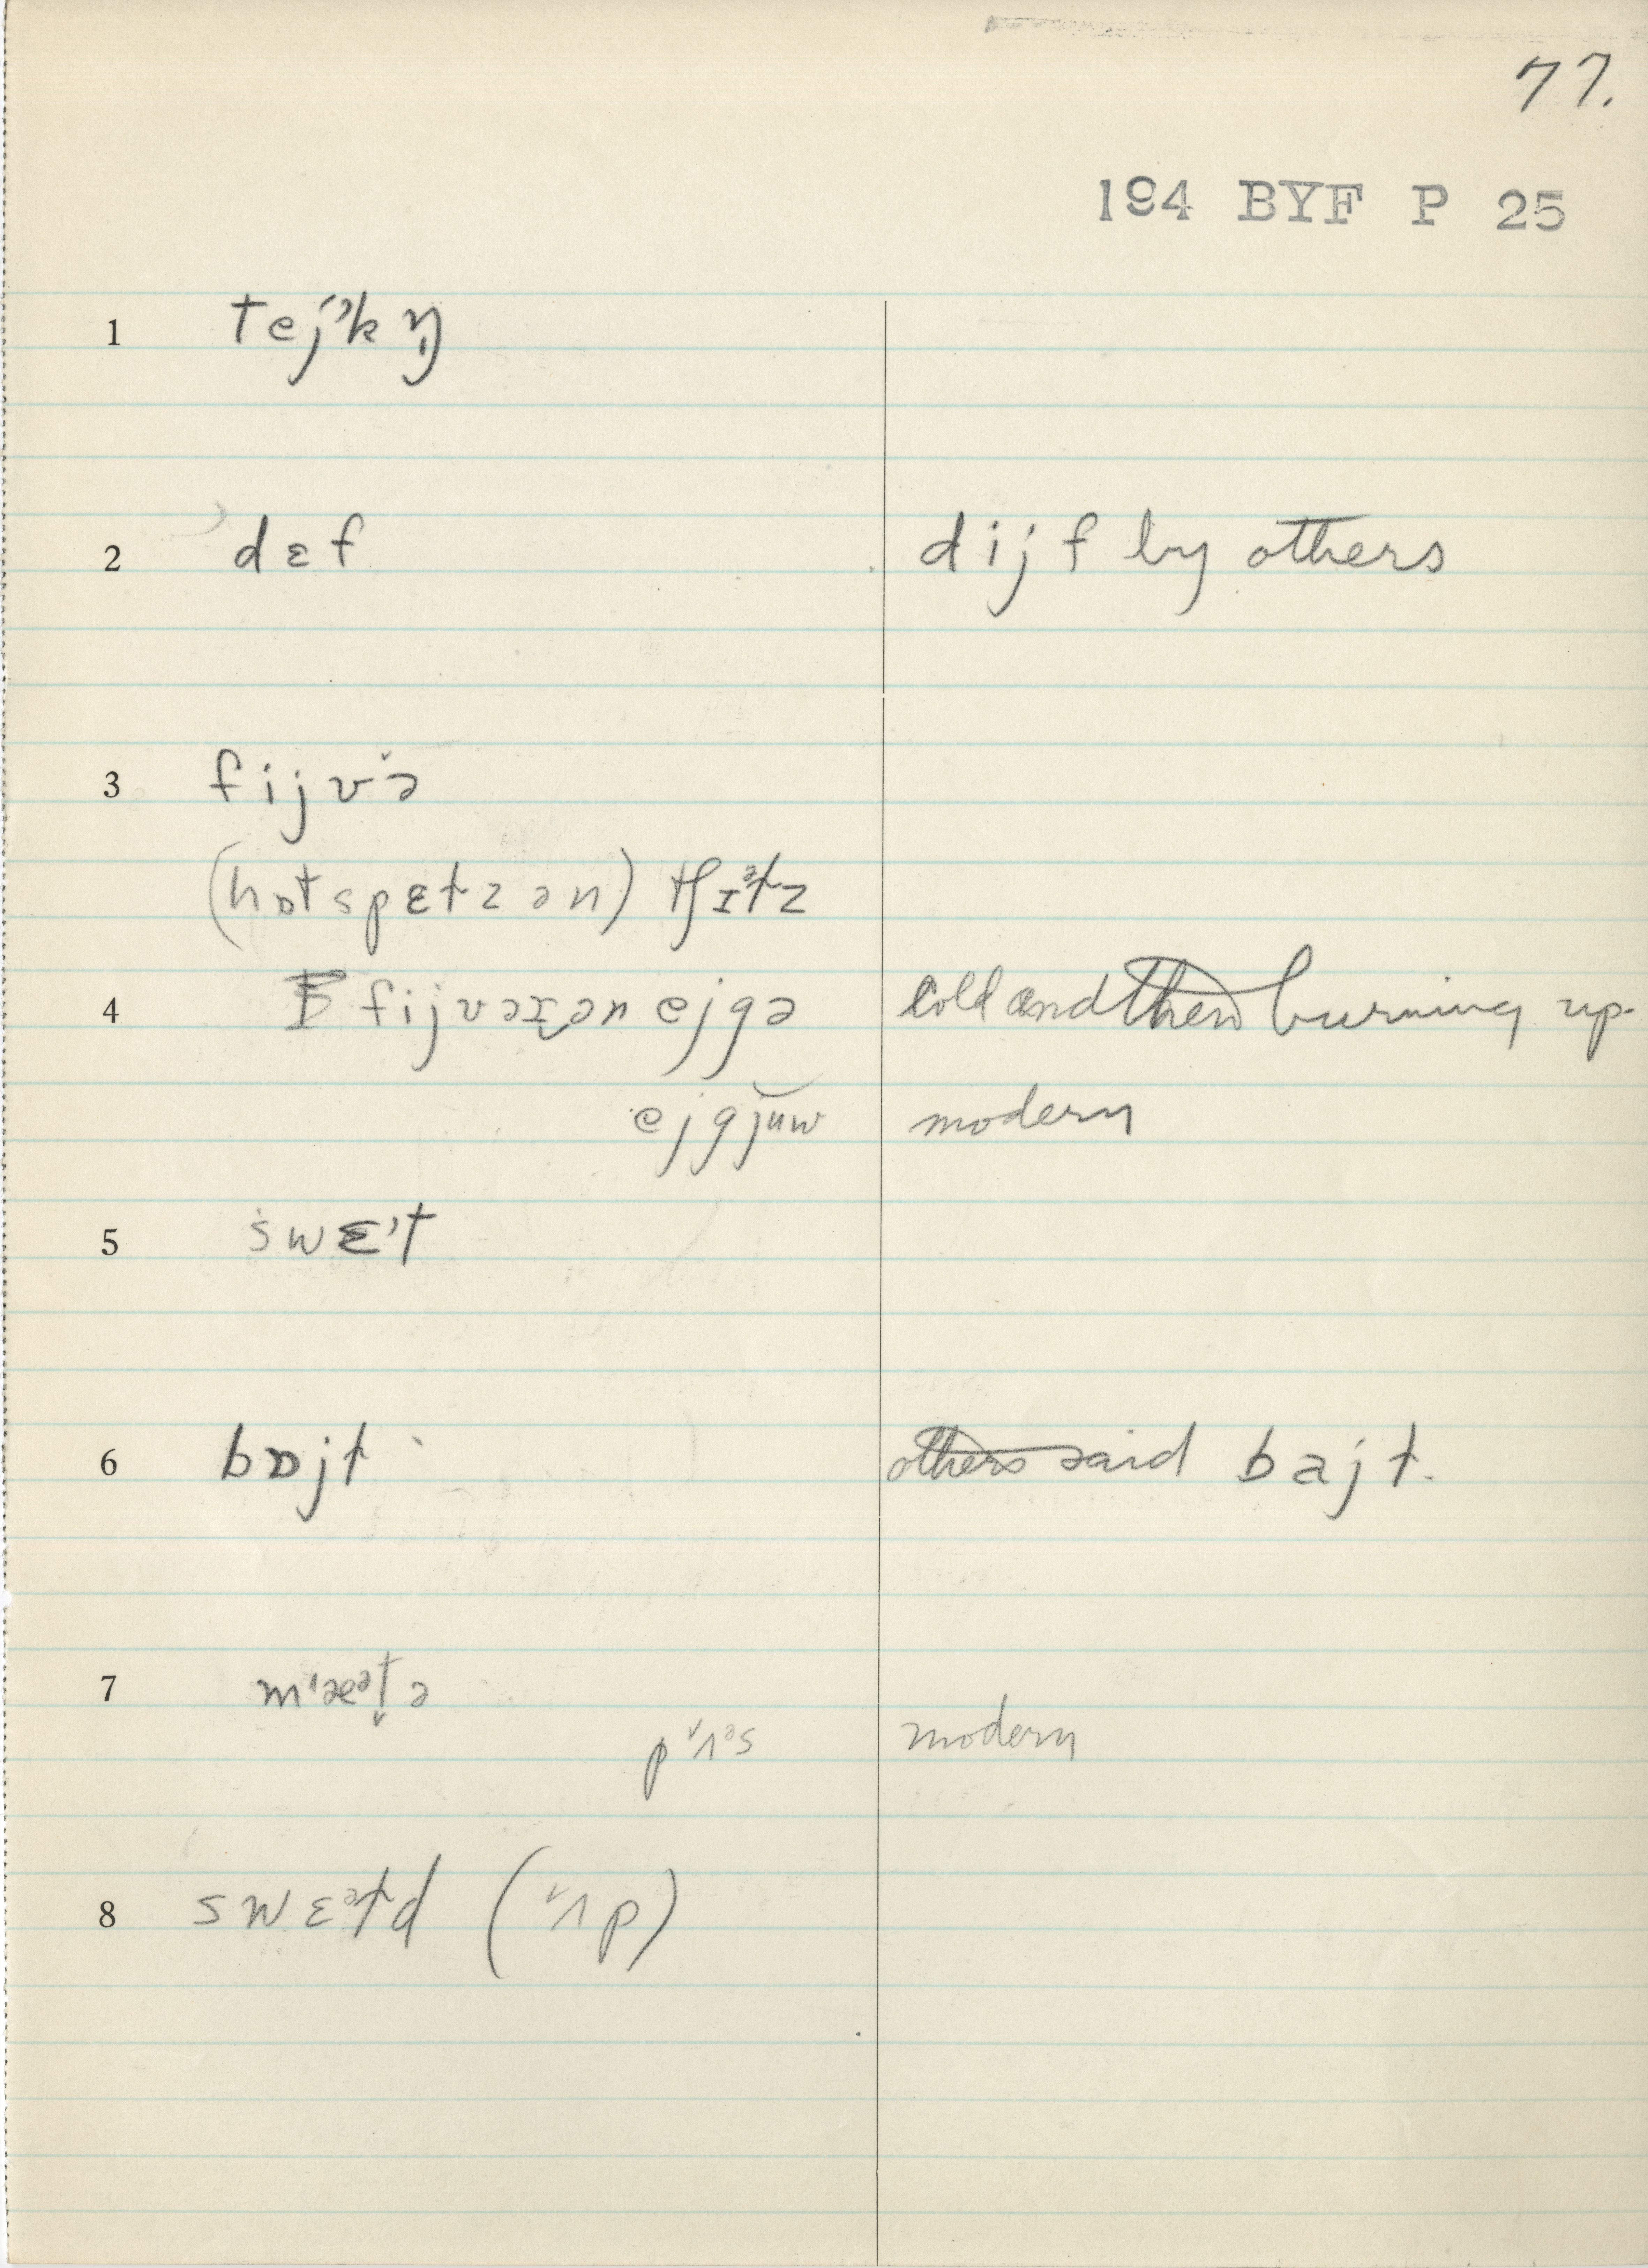 77.
194 BYF P 25
1 tejˀkŋ̍
2 dɛf dijf by others
3 fijvə̆
(hɒtspɛtzən) tʃɪᵊtz
4 fijvəɪən ejgə cold and then burning up.
ejgjuw modern
5 swɛ't
6 bɒjt others said bajt.
7 m'æᵊt̬ə
pʌᵊs modern
8 swɛᵊtd (ʌp)